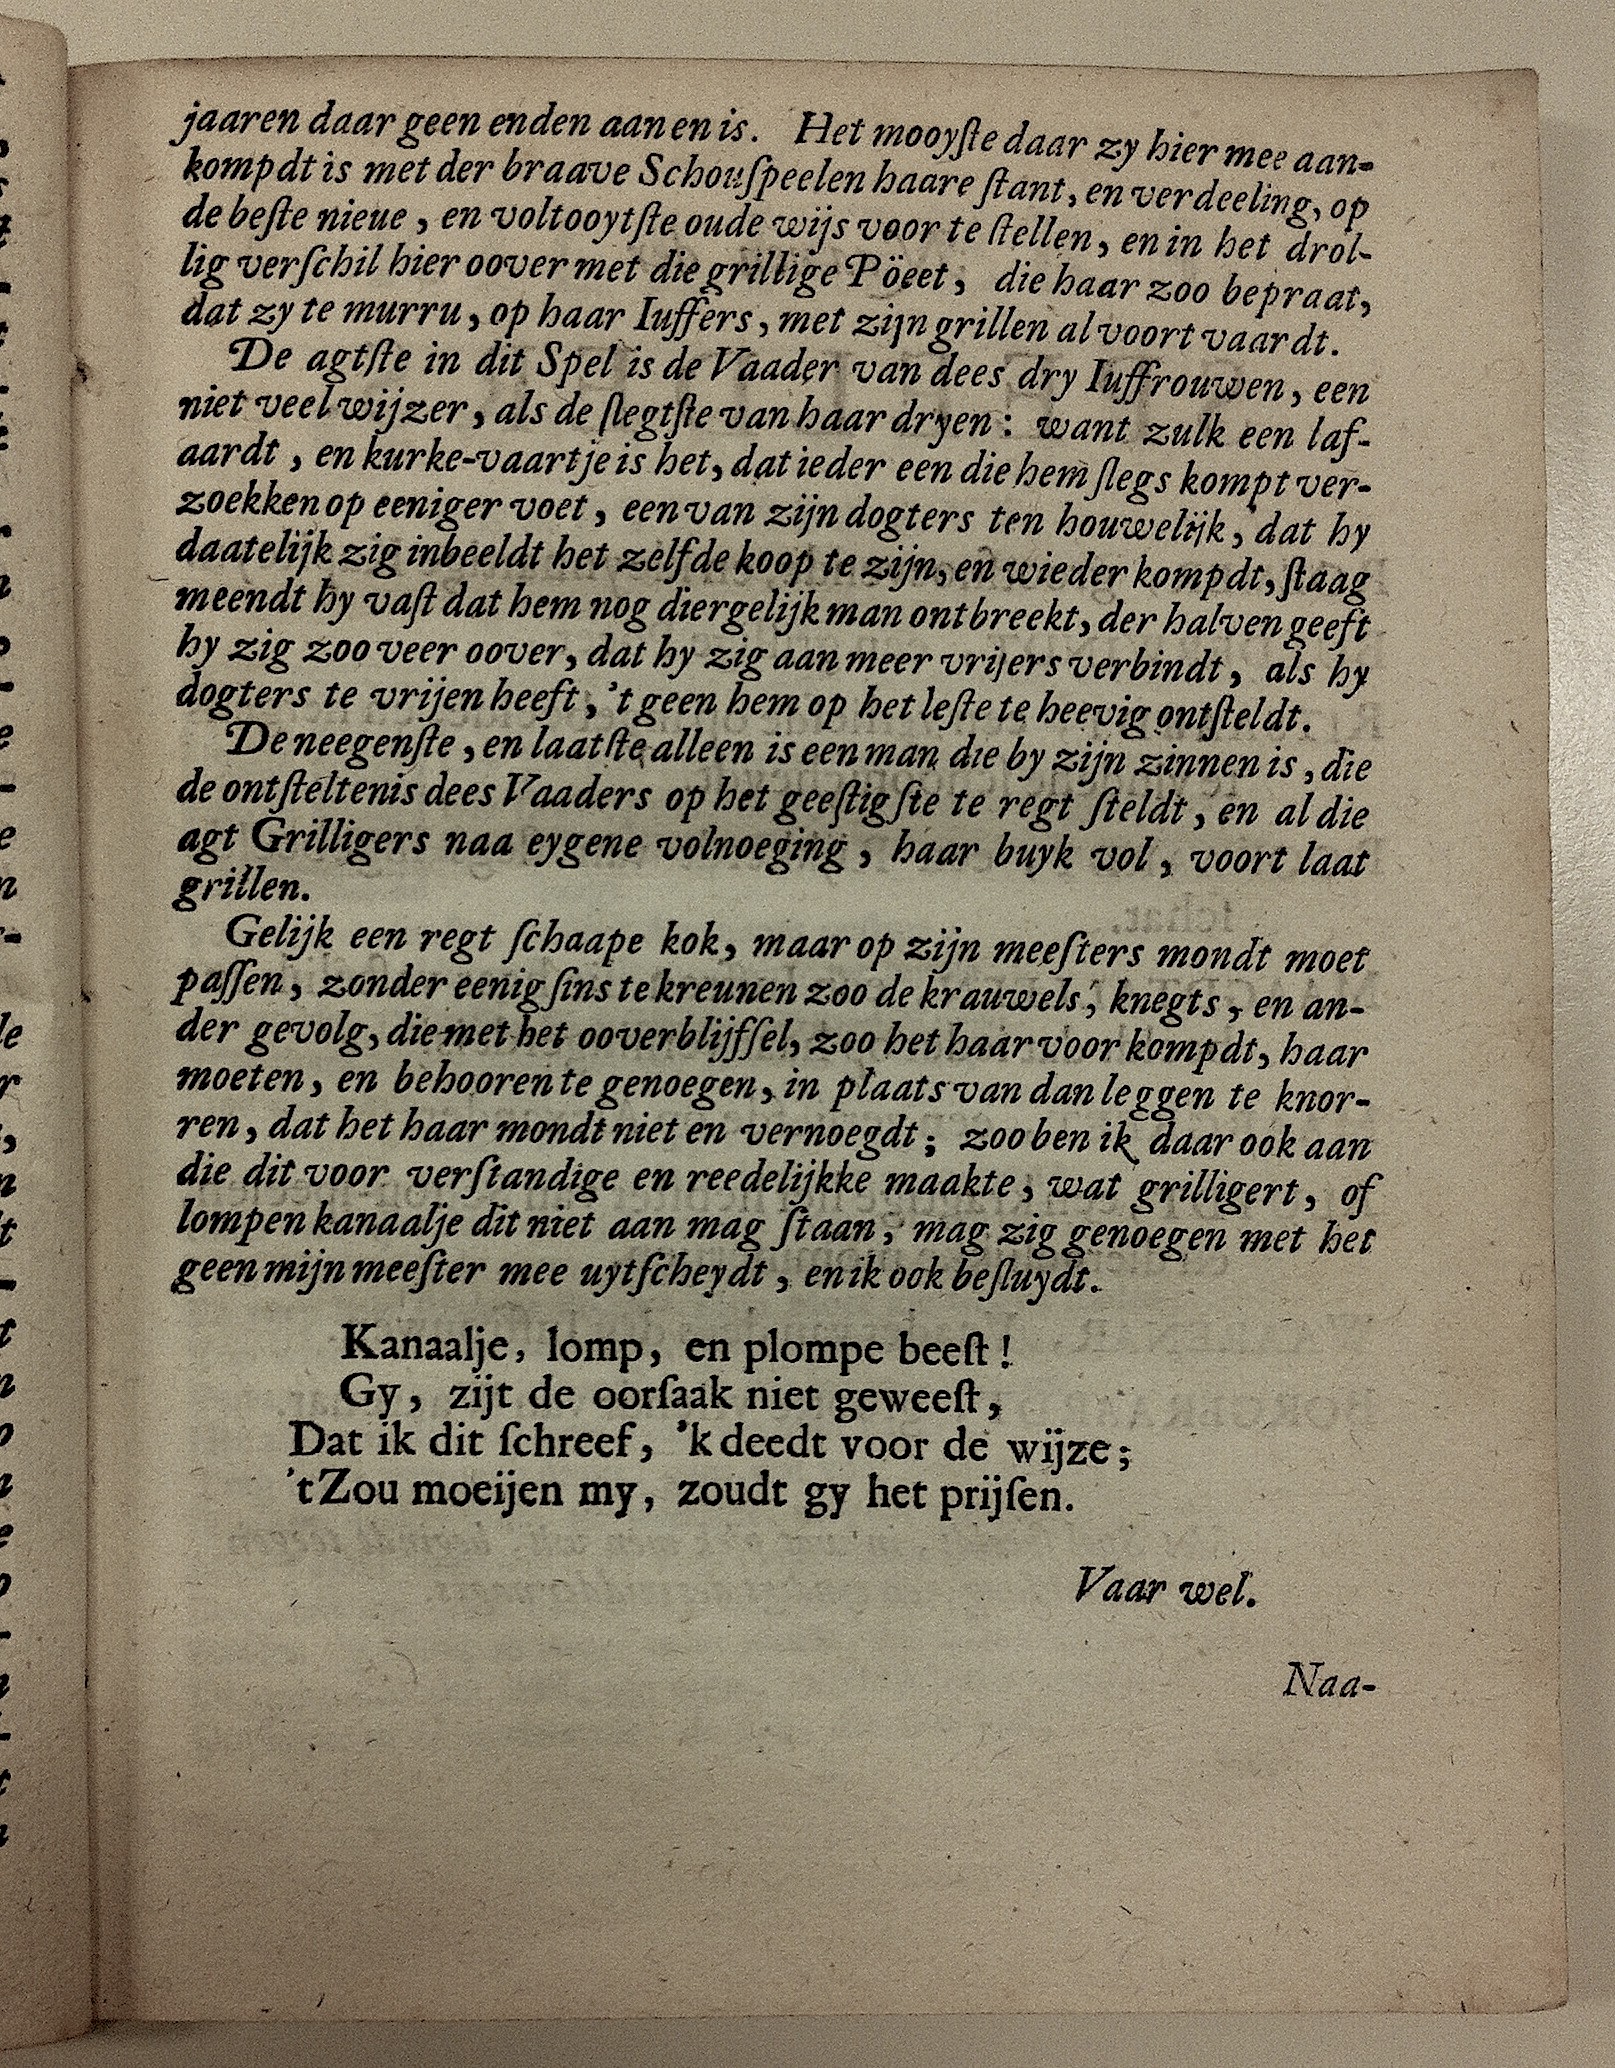 jaaren daar geen enden aan en is. Het mooyſte daar zy hier mee aan-
kompdt is met der braave Schouſpeelen haare ſtant, en verdeeling, op
de beſte nieue, en voltooytſte oude wijs voor te ſtellen, en in het drol-
lig verſchil hier oover met die grillige Pöeet, die haar zoo bepraat,
dat zy te murru, op haar Iuffers, met zijn grillen al voort vaardt.
De agtſte in dit Spel is de Vaader van dees dry Iuffrouwen, een
niet veel wijzer, als de ſlegtſte van haar dryen: want zulk een laf-
aardt, en kurke-vaartje is het, dat ieder een die hem ſlegs kompt ver-
zoekken op eeniger voet, een van zijn dogters ten houwelijk, dat hy
daatelijk zig inbeeldt het zelfde koop te zijn, en wieder kompdt, ſtaag
meendt hy vaſt dat hem nog diergelijk man ontbreekt, der halven geeft
hy zig zoo veer oover, dat hy zig aan meer vrijers verbindt, als hy
dogters te vrijen heeft, 't geen hem op het leſte te heevig ontſteldt.
De neegenſte, en laatſte alleen is een man die by zijn zinnen is, die
de ontſteltenis dees Vaaders op het geeſtigſte te regt ſteldt, en al die
agt Grilligers naa eygene volnoeging, haar buyk vol, voort laat
grillen.
Gelijk een regt ſchaape kok, maar op zijn meeſters mondt moet
paſſen, zonder eenig ſins te kreunen zoo de krauwels, knegts, en an-
der gevolg, die met het ooverblijfſel, zoo het haar voor kompdt, haar
moeten, en behooren te genoegen, in plaats van dan leggen te knor-
ren, dat het haar mondt niet en vernoegdt; zoo ben ik daar ook aan
die dit voor verſtandige en reedelijkke maakte, wat grilligert, of
lompen kanaalje dit niet aan mag ſtaan, mag zig genoegen met het
geen mijn meeſter mee uytſcheydt, en ik ook beſluydt.
Kanaalje, lomp, en plompe beeſt!
Gy, zijt de oorſaak niet geweeſt,
Dat ik dit ſchreef, 'k deedt voor de wijze;
't Zou moeijen my, zoudt gy het prijſen.
Vaar wel.
Naa-